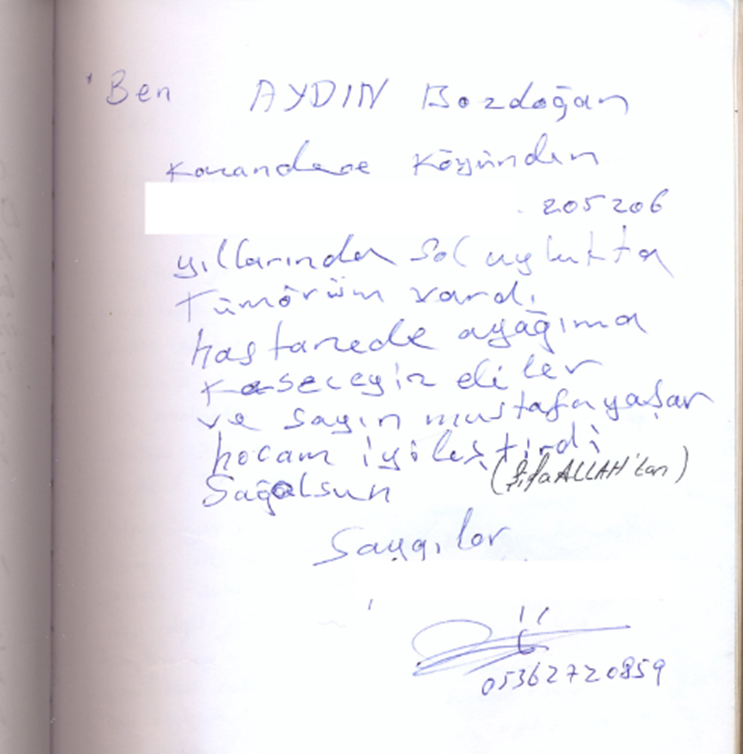 Ben AYDIN Bozdoğan
Kazandere Köyünden
205206
yıllarında Sol uylukta
Tümörüm vardı
hastanede ayağıma
Keseceyiz diler
ve sayın mustafa yaşar
hocam iyileştirdi
(Şifa ALLAH'tan)
Sağolsun
Saygılar
05362720859